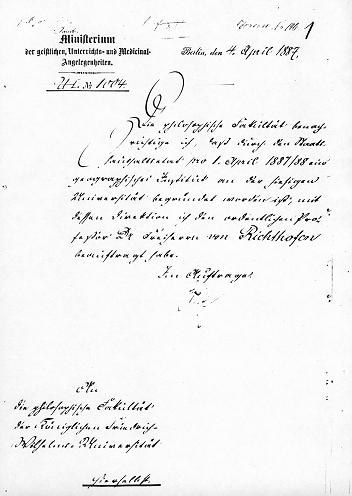 Ministerium
der geistlichen, Unterrichts- und Medicinal-
Angelegenheiten.
Berlin, den 4. April 1887.
1
U I. № 1004
Die philosophische Fakultät benach-
richtige ich, daß durch den Staats-
haushaltsetat pro 1. April 1887/88 ein
geographisches Institut an der hiesigen
Universität begründet worden ist, mit
dessen Direktion ich den ordentlichen Pro-
fessor Dr. Freiherrn von Richthofen
beauftragt habe.
Im Auftrage
An
die philosophische Fakultät
der Königlichen Friedrich-
Wilhelms-Universität
hierselbst.